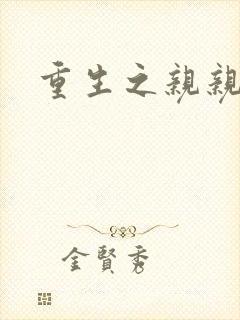 重生之親親
金賢秀